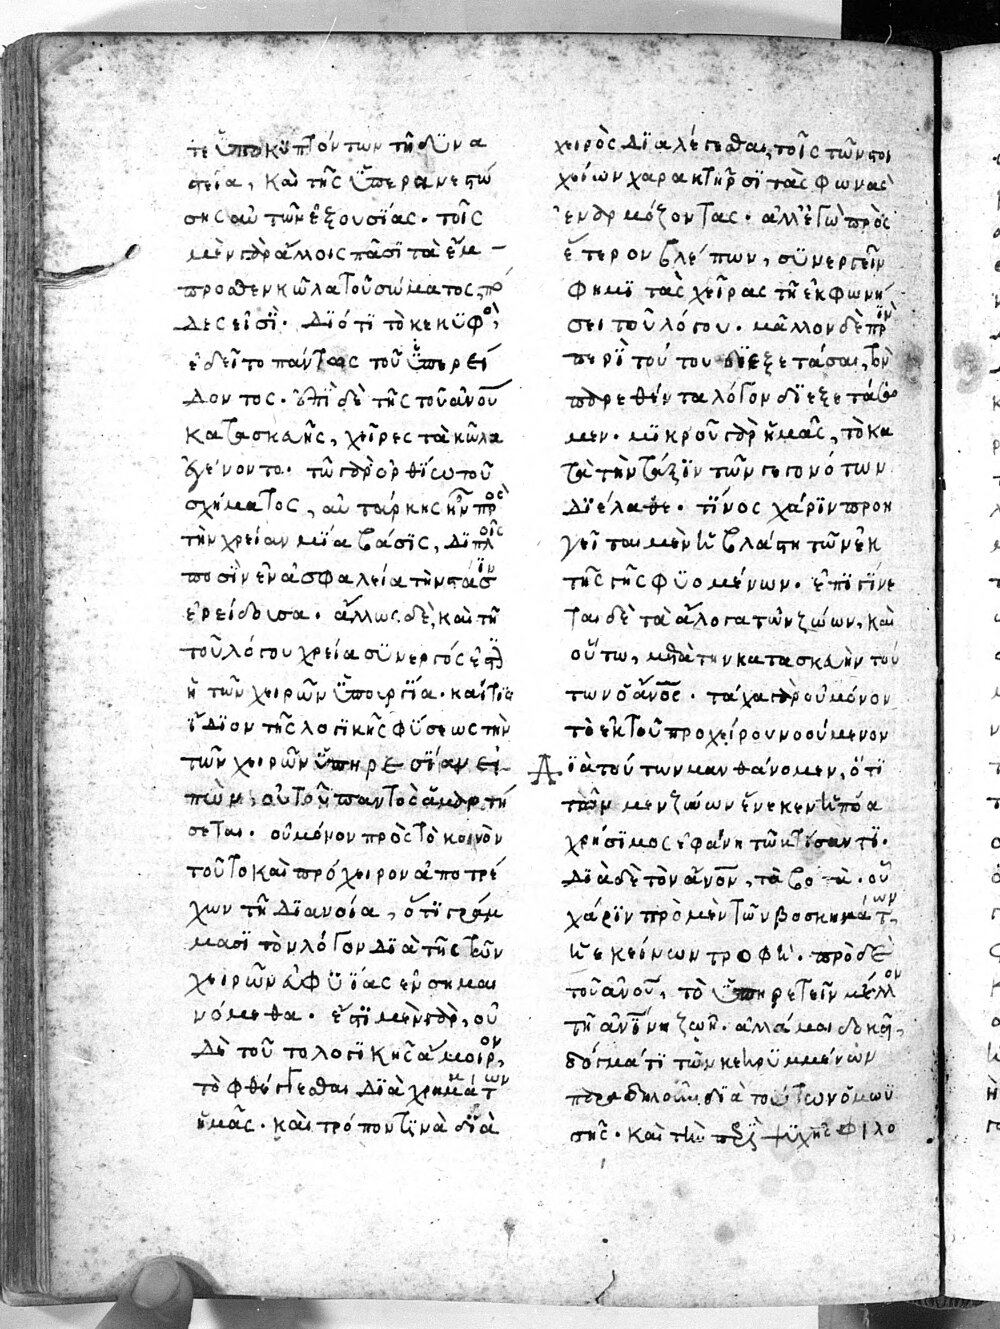 τε ὑποκυπτόντων τῆ δυνα
στεία, καὶ τῆς ὑπερανεστώ
σης αὐτῶν ἐξουσίας. τοῖς
μὲν γὰρ ἄλλοις πᾶσι τὰ ἔμ
προσθεν κῶλα τοῦ σώματος, πό
δες εἰσί. διότι τὸ κεκυφὸς,
ἐδεῖτο πάντως τοῦ ὑπερεί
δοντος. ἐπὶ δὲ τῆς τοῦ ἀνοῦ
κατασκευῆς, χεῖρες τὰ κῶλα
ἐγένοντο. τῶ γὰρ ὀρθίω τοῦ
σχήματος, αὐτάρκης ἦν πρὸς
τὴν χρείαν μία βάσις, διπλοῖς
ποσὶν ἐν ἀσφαλεία τὴν στάσιν
ἐρείδουσα. ἄλλως δὲ, καὶ τῆ
τοῦ λόγου χρεία συνεργός ἐστιν
ἡ τῶν χειρῶν ὑπουργία. καί τις
ἴδιον τῆς λογικῆς φύσεως τὴν
τῶν χειρῶν ὑπηρεσίαν εἰ
πὼν, οὐ τοῦ παντὸς ἁμαρτή
σεται. οὐ μόνον πρὸς τὸ κοινὸν
τοῦτο καὶ πρόχειρον ἀποτρέ
χων τῆ διανοία, ὅτι γράμ
μασι τὸν λόγον διὰ τῆς τῶν
χειρῶν εὐφυΐας ἐνσημαι
νόμεθα. ἔστι μὲν γὰρ, οὐ
δὲ τοῦτο λογικῆς ἄμοιρον,
τὸ φθέγγεσθαι διὰ γραμμάτων
ἡμᾶς. καὶ τρόπον τινὰ διὰ
χειρὸς διαλέγεσθαι, τοῖς τῶν στοι
χείων χαρακτῆρσι τὰς φωνὰς
ἐναρμόζοντας. ἀλλ' ἐγὼ πρὸς
ἕτερον βλέπων, συνεργεῖν
φημὶ τὰς χεῖρας τῆ ἐκφωνή
σει τοῦ λόγου. μᾶλλον δὲ πρὶν
περὶ τούτου διεξετάσαι, τὸν
παρεθέντα λόγον διεξετάσω
μεν. μικροῦ γὰρ ἡμᾶς, τὸ κα
τὰ τὴν τάξιν τῶν γεγονότων
διέλαθε. τίνος χάριν προη
γεῖται μὲν ἡ βλάστη τῶν ἐκ
τῆς γῆς φυομένων. ἐπιγίνε
ται δὲ τὰ ἄλογα τῶν ζώων, καὶ
οὕτω, μετὰ τὴν κατασκευὴν τού
των ὁ ἄνος. τάχα γὰρ οὐ μόνον
τὸ ἐκ τοῦ προχείρου νοούμενον
διὰ τούτων μανθάνομεν, ὅτι
τῶν μεν ζώων ἕνεκεν ἡ πόα
χρήσιμος ἐφάνη τῶ κτίσαντι.
διὰ δὲ τὸν ἄνον, τὰ βοτά. οὗ
χάριν πρὸ μὲν τῶν βοσκημάτων,
ἡ ἐκείνων τροφὴ. πρὸ δὲ
τοῦ ἀνοῦ, τὸ ὑπηρετεῖν μέλλον
τῆ ἀνίνη ζωῆ. ἀλλά μοι δοκεῖ,
δόγμά τι τῶν κεκρυμμένων
παραδηλοῦν διὰ τούτων ὁ μωϋ
σῆς. καὶ τὴν περὶ ψυχῆς φιλο